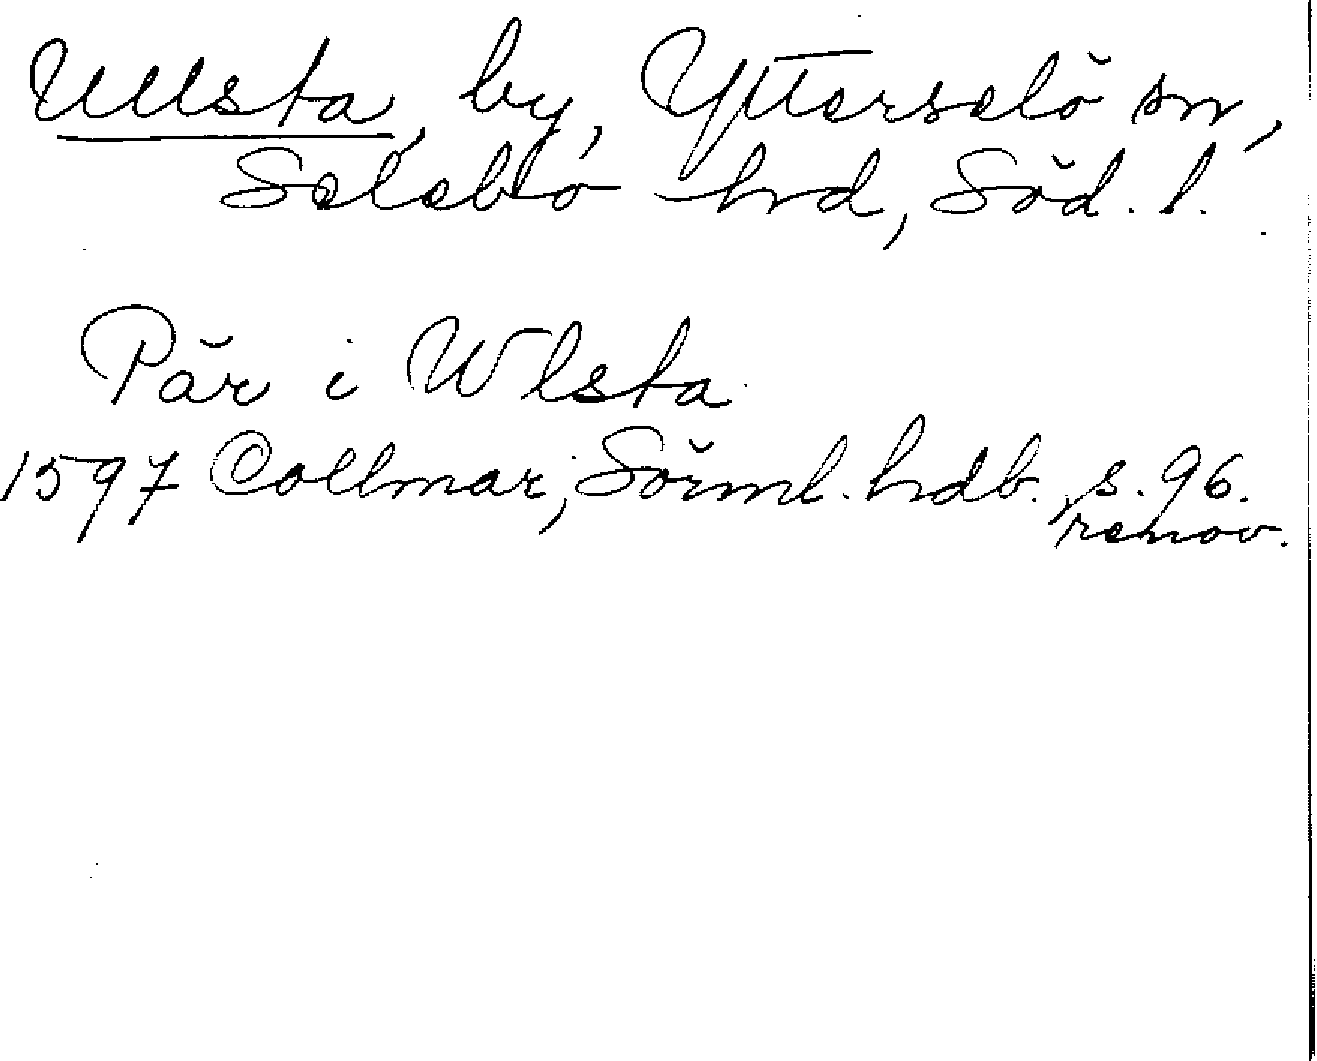 Ullsta, by, Ytterselö sn,
Selebo hrd, Söd. l.
Pär i Wlsta
1597 Collmar, Sörml. hdb., s. 96.
renov.